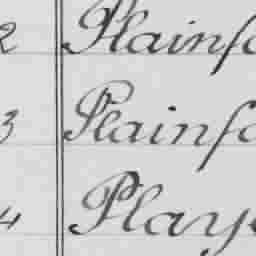 2 Plainfo
3 Plainfo
4 Playe